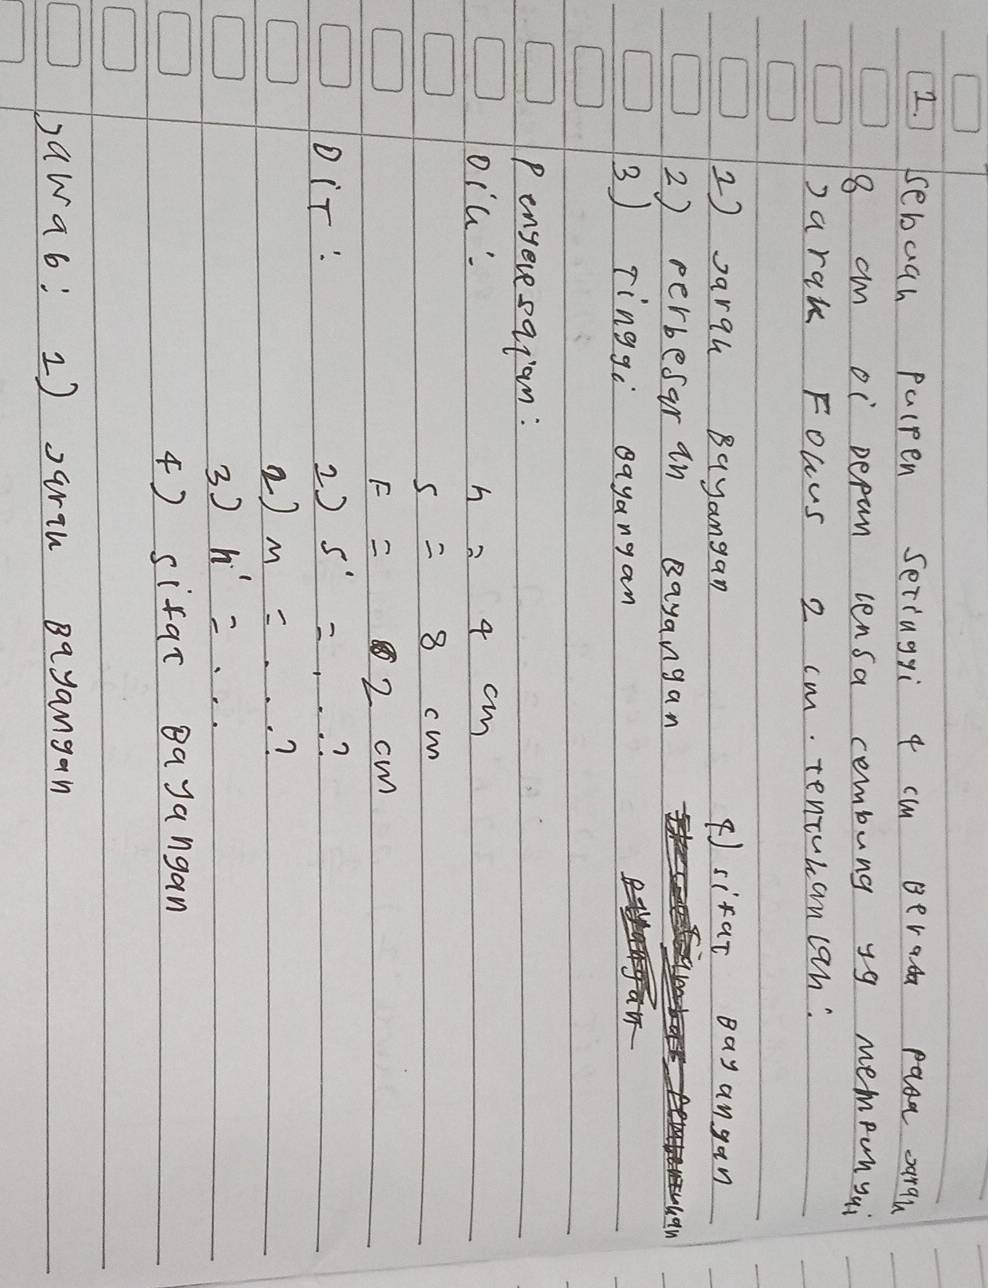 1. Sebuah pulpen setinggi 4 cm berada pada jarak
8 cm di depan lensa cembung yg mempunyai
jarak Fokus 2 cm. tentukanlah:
1) Jarak Bayangan 4) sifat Bayangan
2) Perbesaran Bayangan
3) Tinggi Bayangan
Penyelesaian:
Dik: h = 4 cm
s = 8 cm
F = 2 cm
DIT: 1) s' = ....?
2) M = ....?
3) h' = ....
4) sifat Bayangan
Jawab: 1) Jarak Bayangan